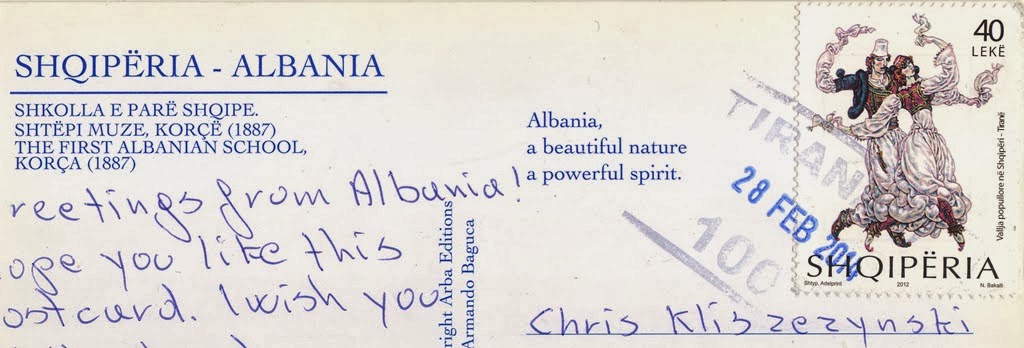 SHQIPËRIA - ALBANIA
SHKOLLA E PARË SHQIPE.
SHTËPI MUZE, KORÇË (1887)
THE FIRST ALBANIAN SCHOOL,
KORÇA (1887)
reetings from Albania!
ope you like this
ostcard. I wish you
right Arba Editions
Armando Baguca
Albania,
a beautiful nature
a powerful spirit.
TIRAN
28 FEB
100
40
LEKË
Vallja popullore në Shqipëri - Tiranë
SHQIPËRIA
Shtyp. Adelprint
2012
N. Bakalli
Chris Kliszezynski